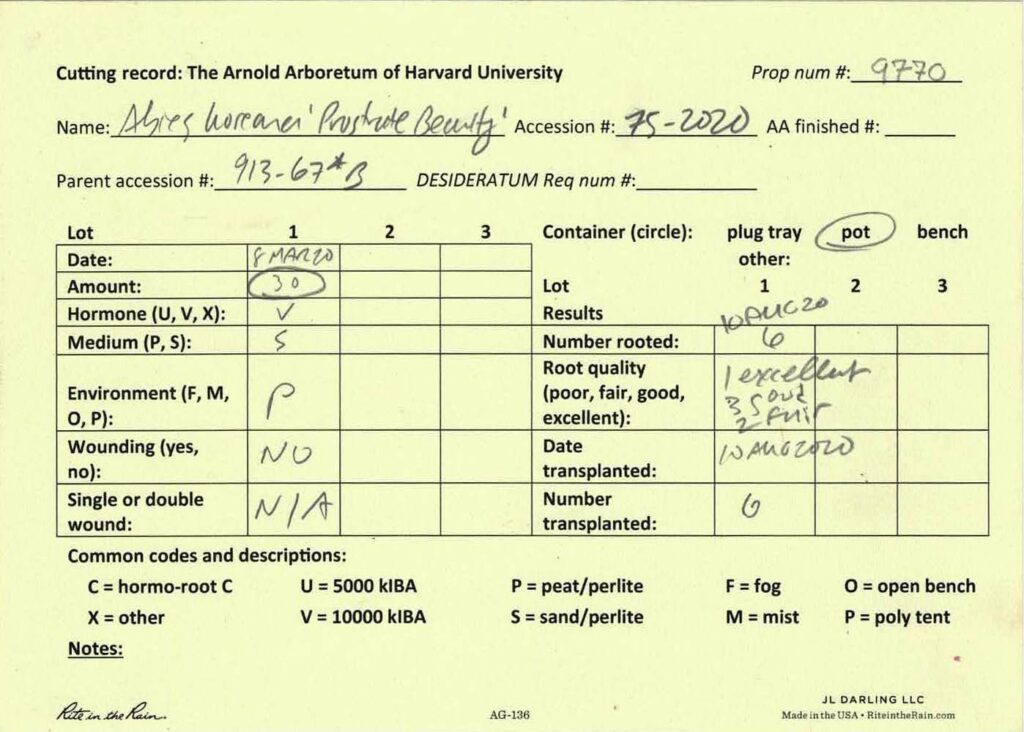 Cutting record: The Arnold Arboretum of Harvard University Prop num #: 9770
Name: Abies koreana 'Prostrate Beauty' Accession #: 75-2020 AA finished #:
Parent accession #: 913-67*B DESIDERATUM Req num #:
Lot 1 2 3 Container (circle): plug tray pot bench
other:
Date: 8 MAR 20
Amount: 30 Lot 1 2 3
Hormone (U, V, X): V Results 10 AUG 20
Medium (P, S): S Number rooted: 6
Environment (F, M, O, P): P Root quality (poor, fair, good, excellent): 1 excellent
3 good
2 fair
Wounding (yes, no): NO Date transplanted: 10 AUG 2020
Single or double wound: N/A Number transplanted: 6
Common codes and descriptions:
C = hormo-root C U = 5000 kIBA P = peat/perlite F = fog O = open bench
X = other V = 10000 kIBA S = sand/perlite M = mist P = poly tent
Notes:
Rite in the Rain AG-136 JL DARLING LLC
Made in the USA • RiteintheRain.com